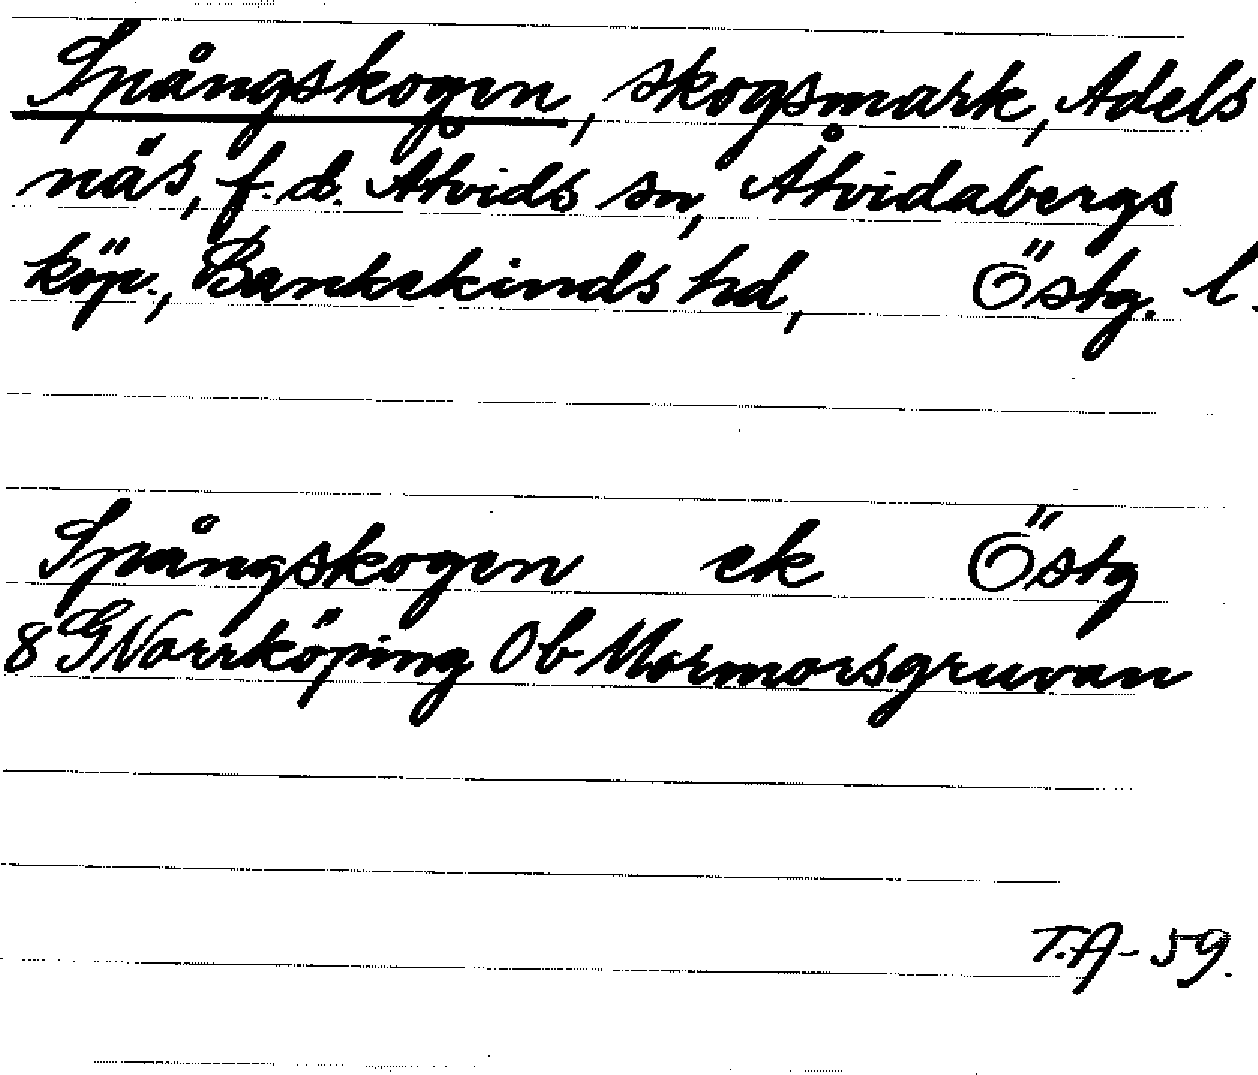 Spångskogen, skogsmark, Adels
näs, f.d. Åtvids sn, Åtvidabergs
köp., Bankekinds hd, Östg. l.
Spångskogen ek Östg
8 G Norrköping 0b Mormorsgruvan
T.A-59.